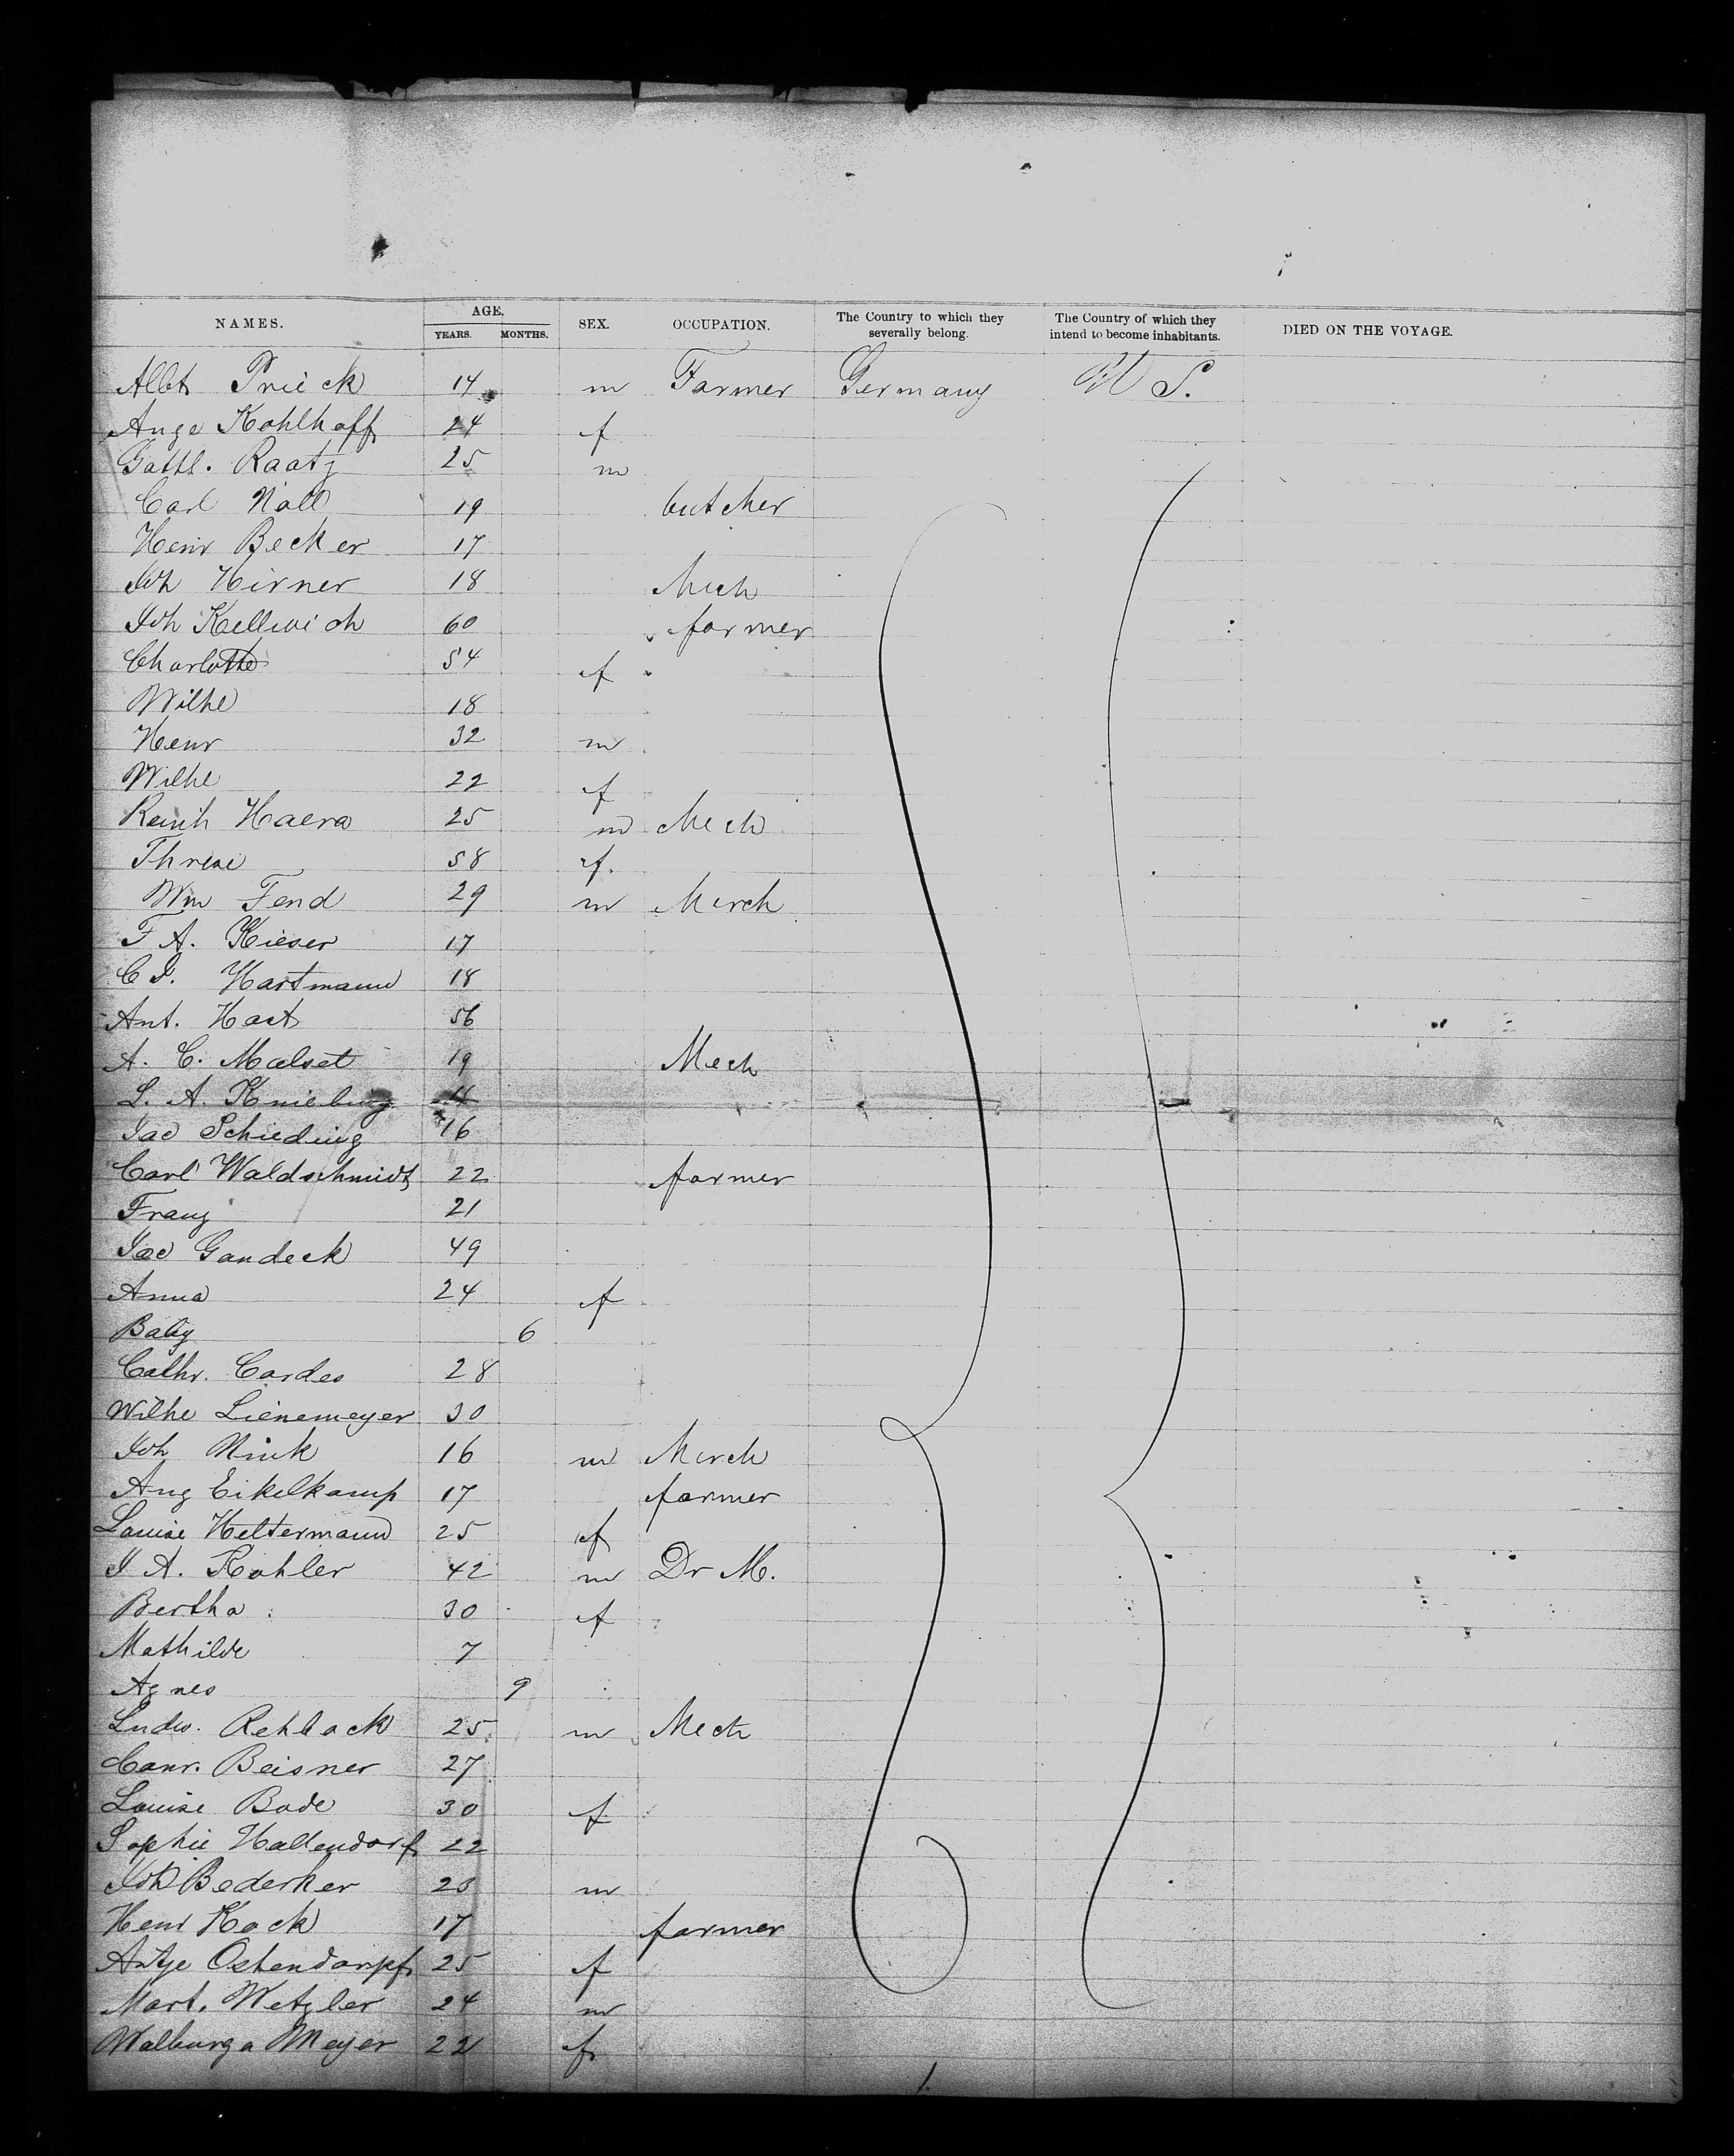 NAMES. AGE. YEARS. MONTHS. SEX. OCCUPATION. The Country to which they severally belong. The Country of which they intend to become inhabitants. DIED ON THE VOYAGE.
Albt Prieck 14 m Farmer Germany U S.
Auge Kohlhoff 24 f
Gottl. Raatz 25 m
Carl Noll 19 butcher
Henr Becker 17
Joh Hirner 18 Mech
Joh Kelluich 60 farmer
Charlotte 54 f
Wilhe 18
Henr 32 m
Wilhe 22 f
Reinh Haera 25 m Mech
Threse 58 f.
Wm Fend 29 m Merch
F A. Kieser 17
C J. Hartmann 18
Ant. Hart 56
A. C. Malset 19 Mech
L. A. Kniebing
Jac Schieding 16
Carl Waldschmidt 22 farmer
Franz 21
Jac Gandeck 49
Anna 24 f
Baby 6
Cathr. Cordes 28
Wilhe Lienemeyer 30
Joh Mink 16 m Merch
Aug Eikelkamp 17 farmer
Louise Heltermann 25 f
J A. Kohler 42 m Dr M.
Bertha 30 f
Mathilde 7
Agnes 9
Ludw. Rehback 25 m Mech
Conr. Beisner 27
Louise Bode 30 f
Sophie Hallendorf 22
Joh Bederker 20 m
Henr Kock 17 farmer
Antje Ostendorpf 25 f
Mart. Wetzler 24 m
Walburga Meyer 22 f